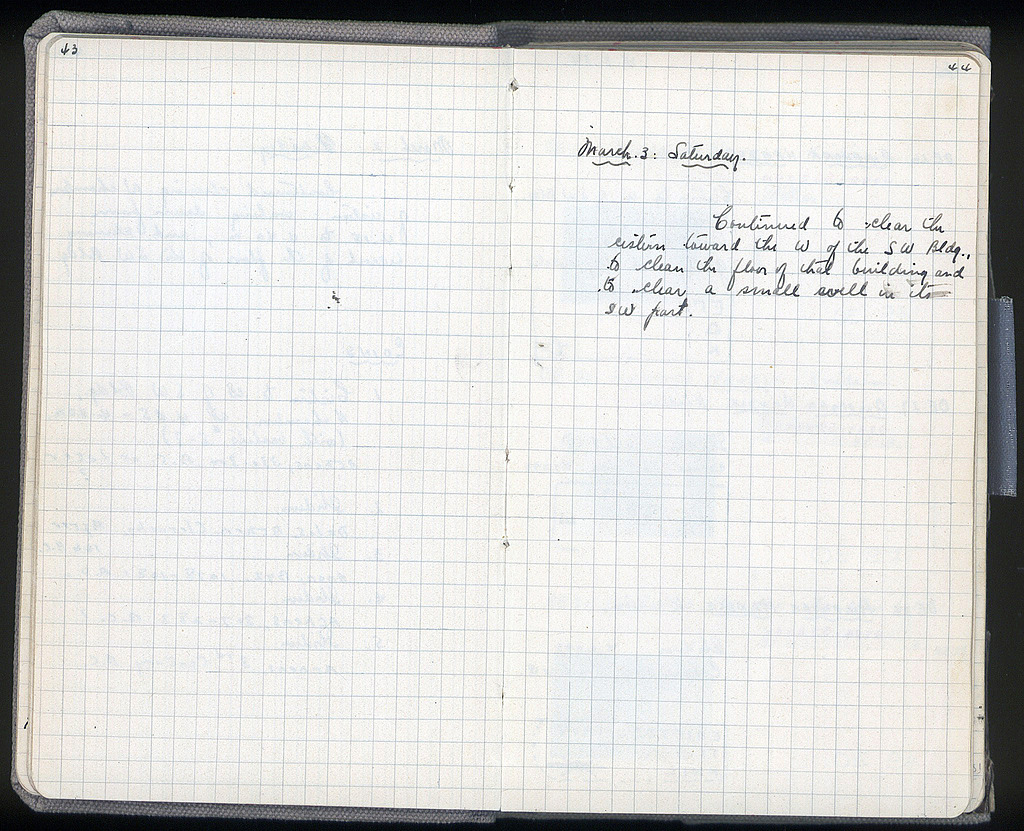 43
44
March. 3: Saturday.
Continued to clear the
cistern toward the W of the SW Bldg.,
to clean the floor of that building and
to clear a small well in its
SW part.